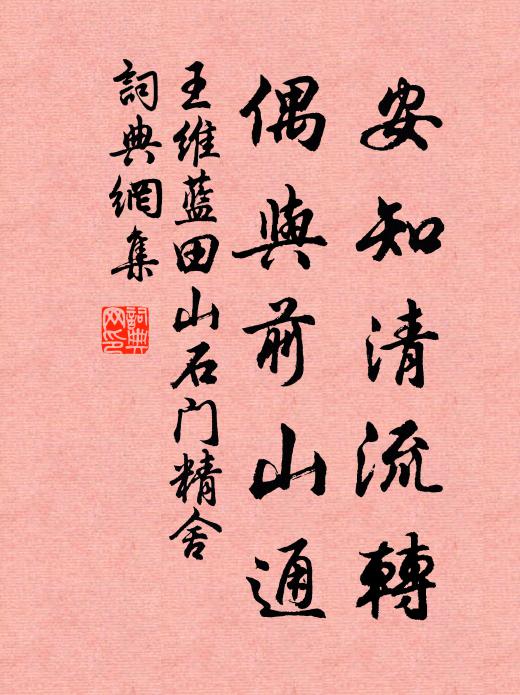 安知清流轉
偶與前山通
王維藍田山石门精舍
詞典網集
詞典网印